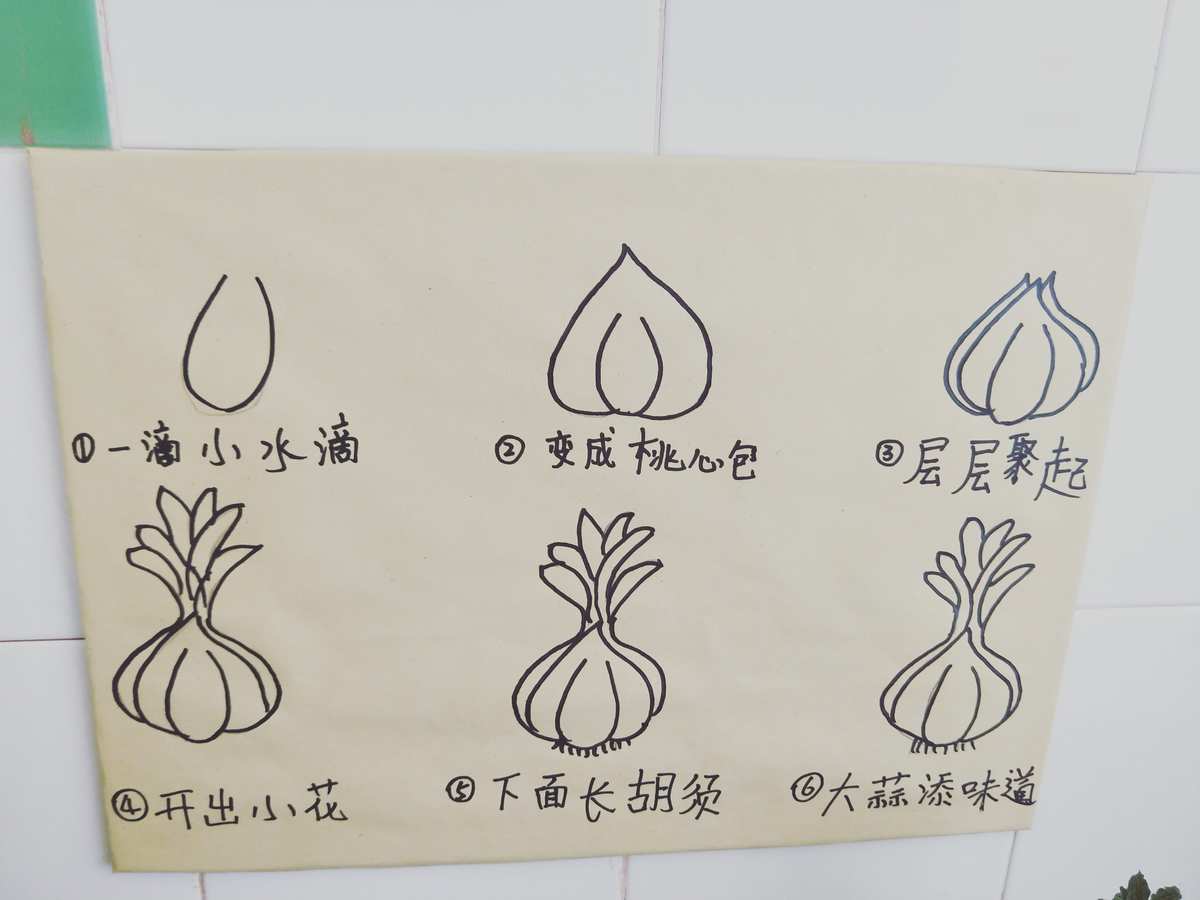 ①一滴小水滴
②变成桃心包
③层层聚起
④开出小花
⑤下面长胡须
⑥大蒜添味道